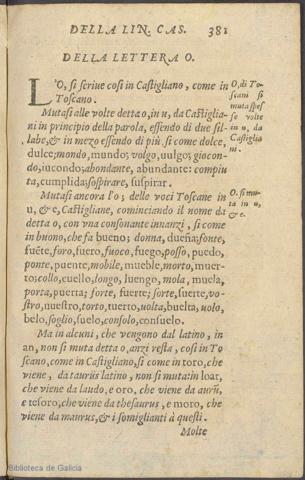 DELLA LIN. CAS. 381
DELLA LETTERA O.
L'O, si scriue cosi in Castigliano, come in
Toscano.
Mutasi alle volte detta o, in u, da Castiglia-
ni in principio della parola, essendo di due sil-
labe, & in mezo essendo di più. sì come dolce,
dulce; mondo, mundo; volgo, uulgo; giocon-
do, iucondo; abondante, abundante: compiu
ta, cumplida; sospirare, suspirar.
O, di To-
scani si
muta spes
se volte
in u, da
Castiglia
ni.
Mutasi ancora l'o; dello voci Toscane in
u, & e, Castigliane, cominciando il nome da
detta o, con vna consonante innanzi, sì come
in buono, che fa bueno; donna, dueña; fonte,
fuẽte, foro, fuero, fuoco, fuego, posso, puedo,
ponte, puente, mobile, mueble, morto, muer-
to; collo, cuello, longo, luengo, mola, muela,
porta, puerta; forte, fuerte; sorte, suerte, vo-
stro, nuestro, torto, tuerto, uolta, buelta, uolo,
belo, soglio, suelo, consolo, consuelo.
O. si mu-
ta in u,
& e.
Ma in alcuni, che vengono dal latino, in
an, non si muta detta o, anzi resta, così in To
scano, come in Castigliano, sì come in toro, che
viene, da tauriis latino, non si muta: in loar,
che viene da laudo, e oro, che viene da aurũ,
e tesoro, che viene da thesaurus, e moro, che
viene da maurus, & i somiglianti à questi.
Molte
Biblioteca de Galicia